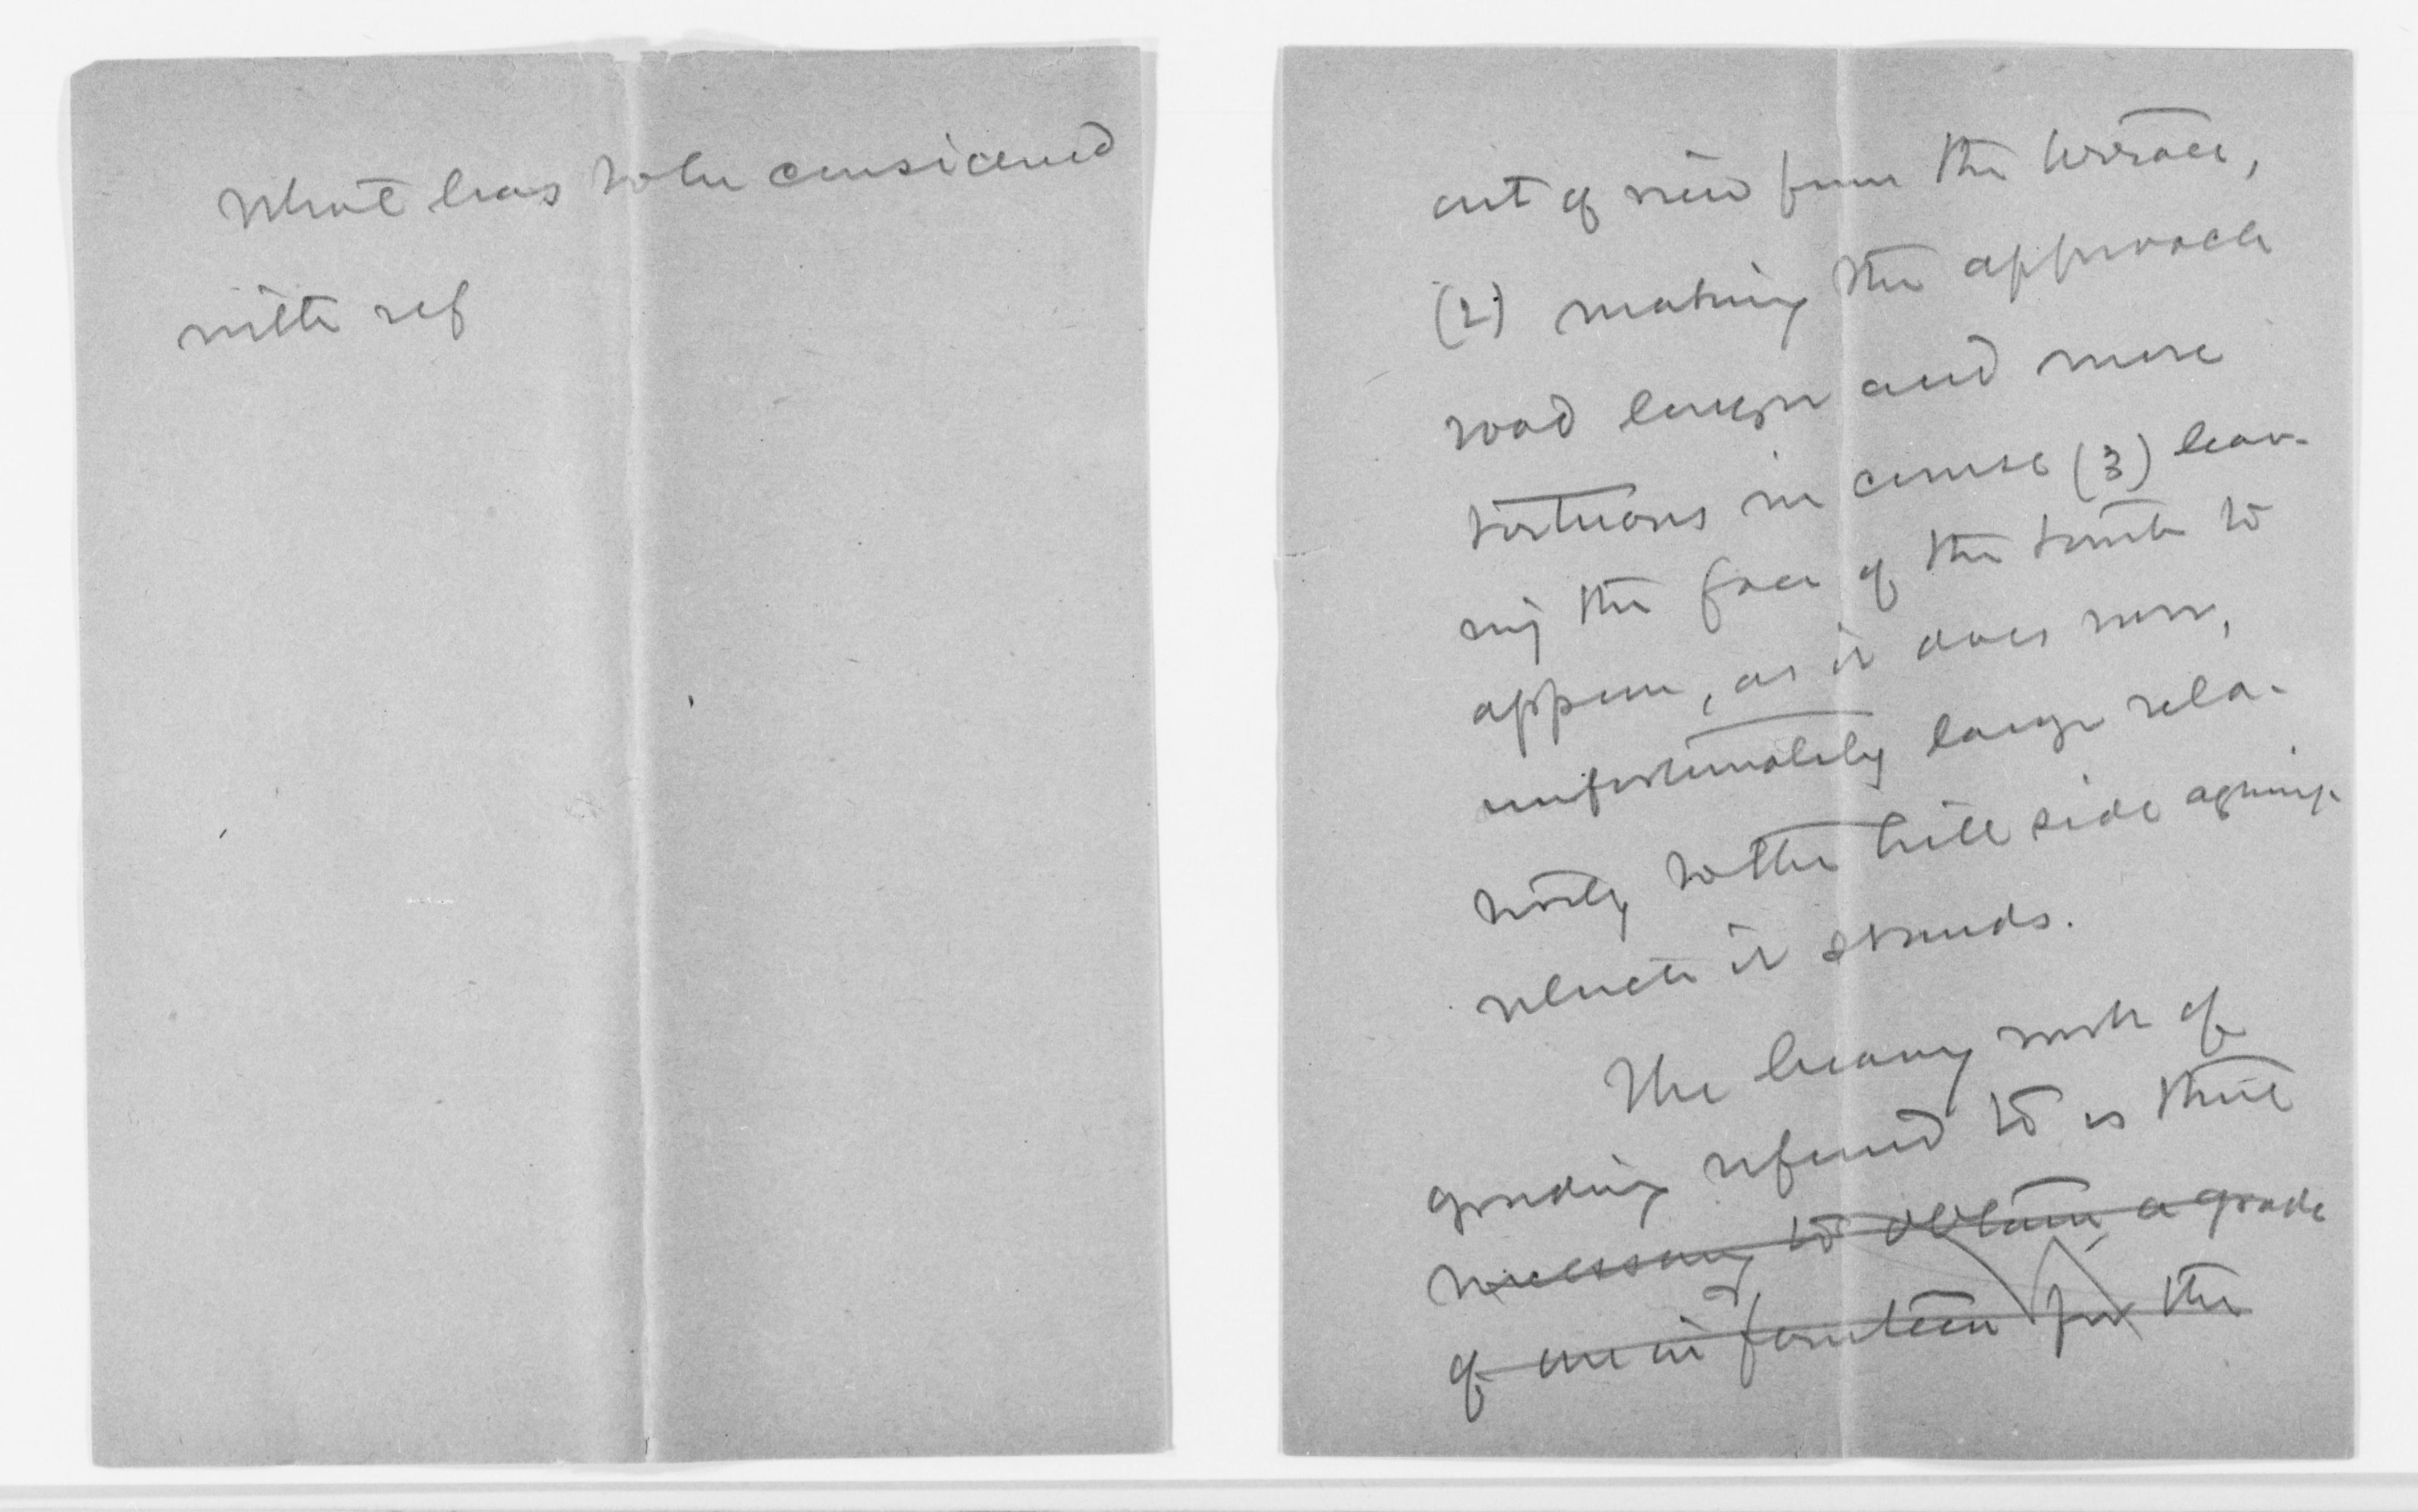 What has to be considered
with ref
out of view from the terrace,
(2) making the approach
road longer and more
tortuous in course (3) leav-
ing the face of the tomb to
appear, as it does now,
unfortunately large rela-
tively to the hill side against
which it stands.
The heavy work of
grading referred to is that
necessary to obtain a grade
of one in fourteen for the